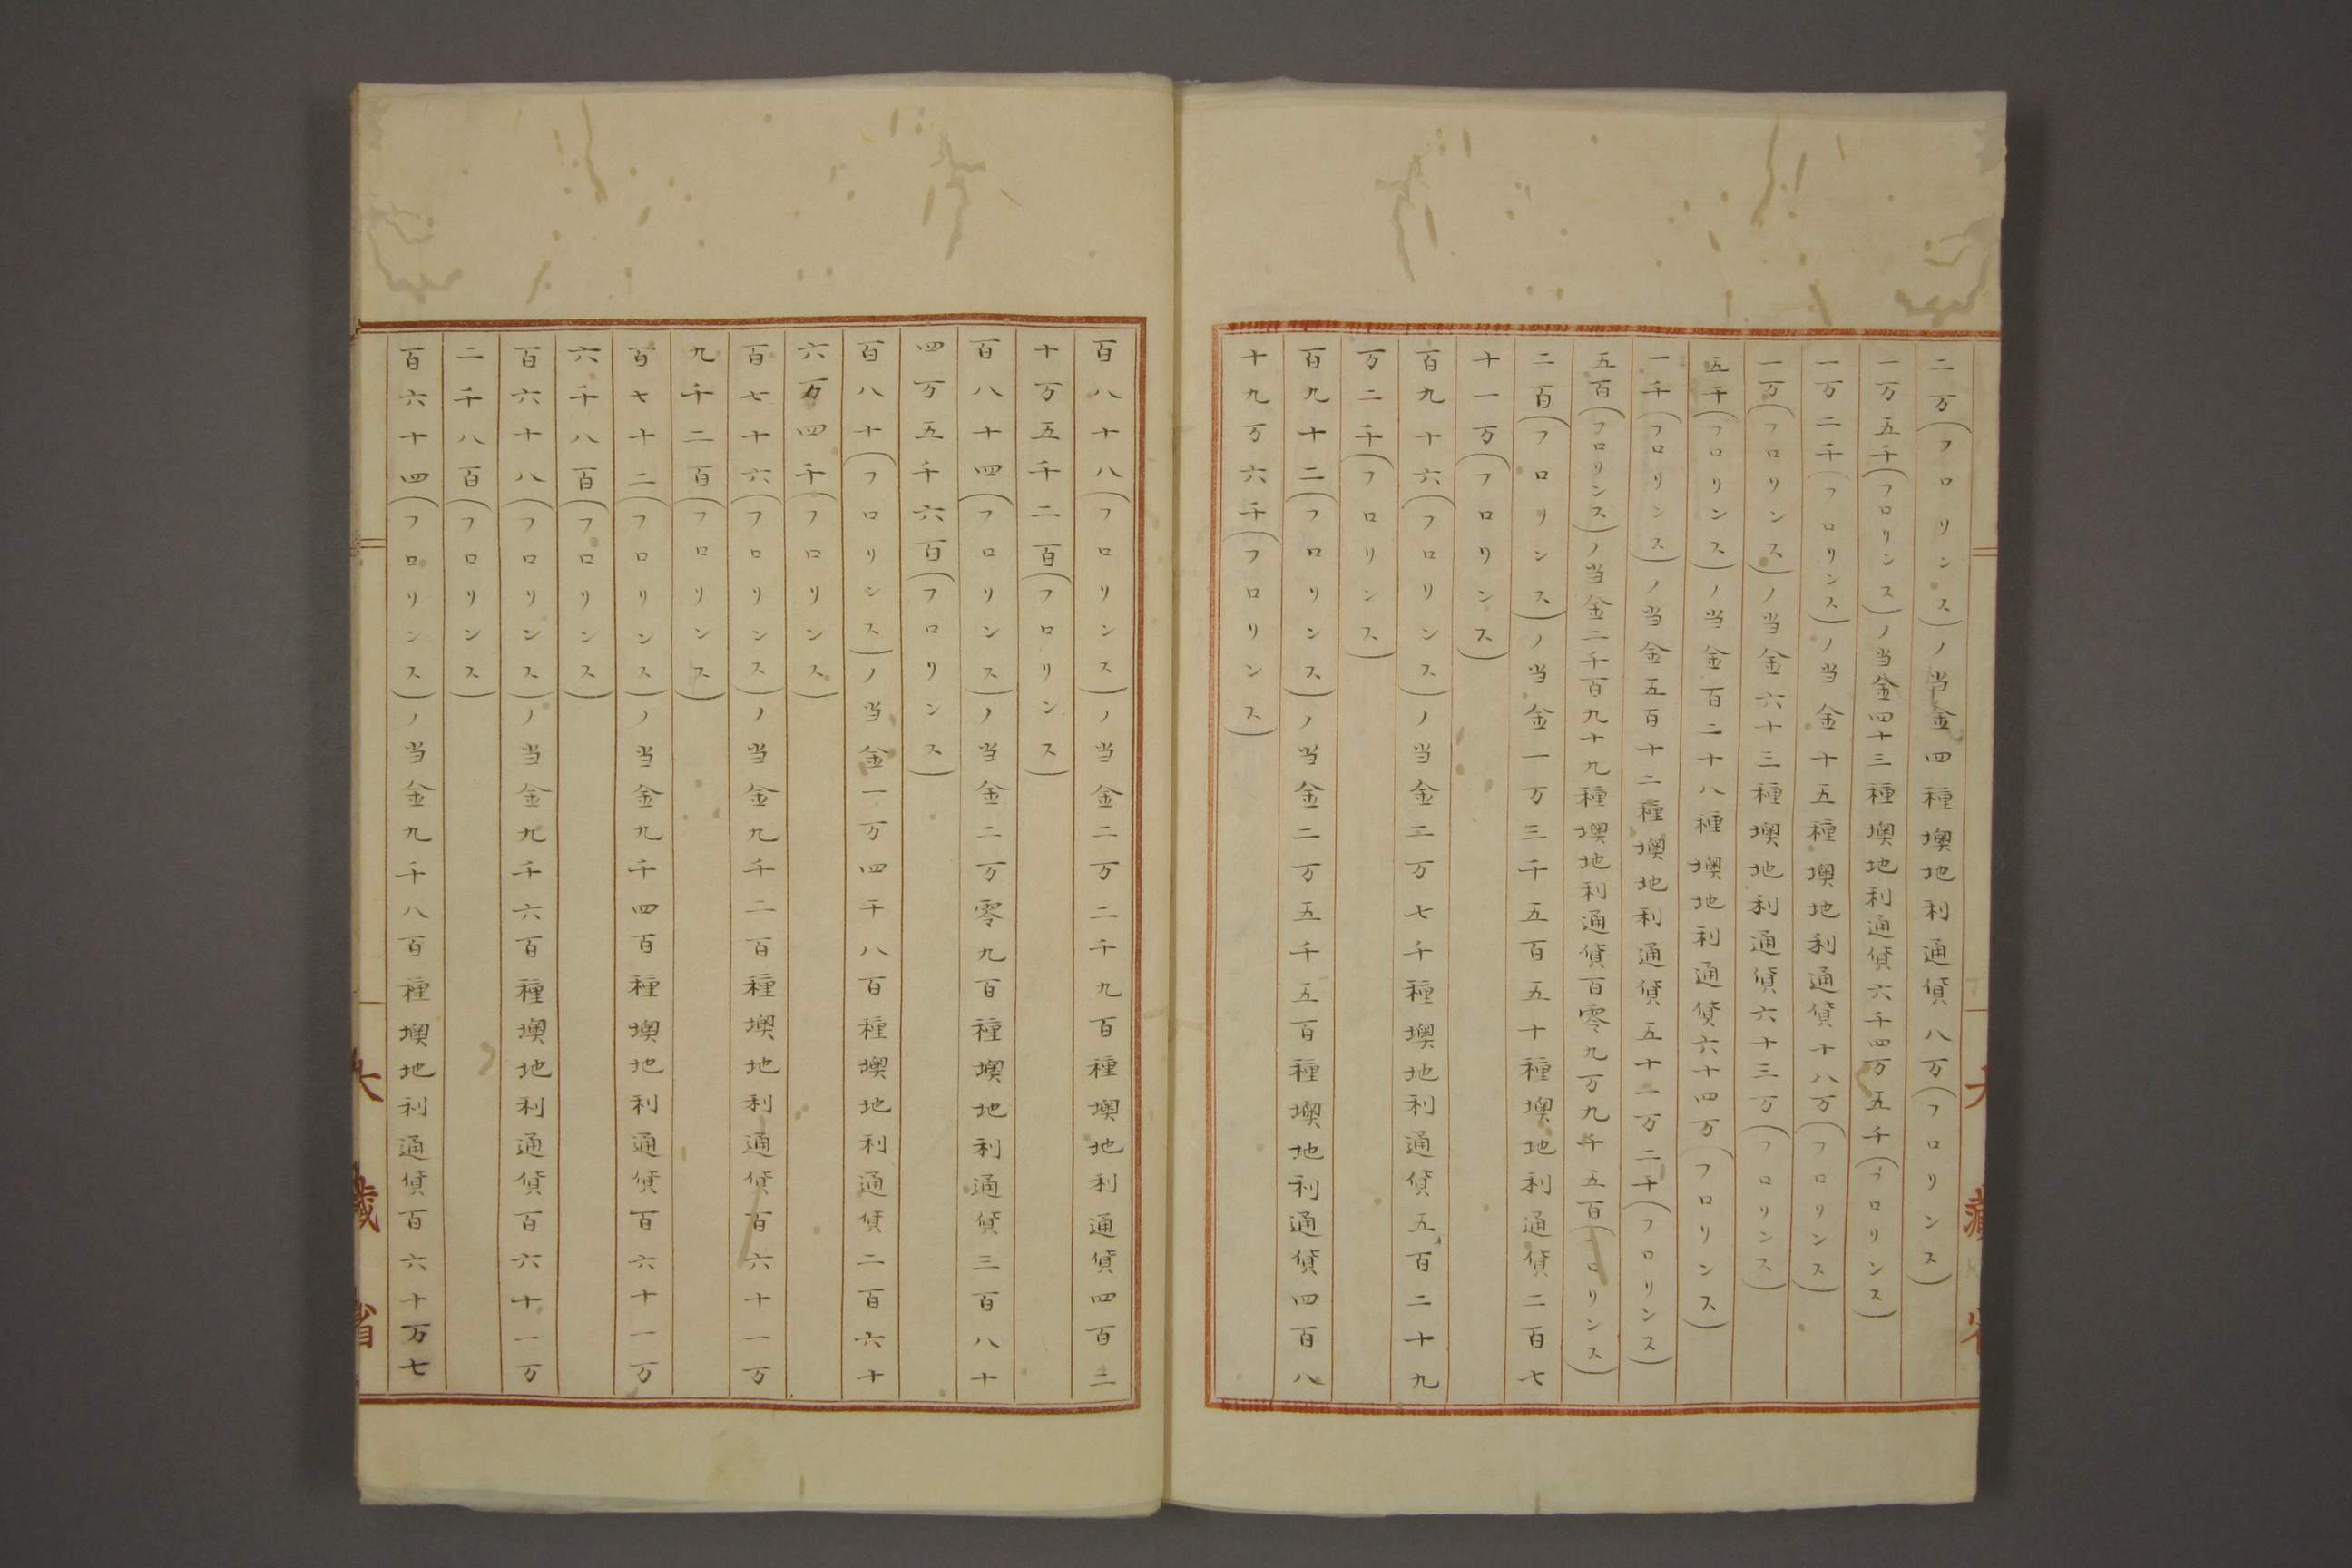 二万(フロリンス)ノ当金四種墺地利通貨八万(フロリンス)
一万五千(フロリンス)ノ当金四十三種墺地利通貨六千四万五千(フロリンス)
一万二千(フロリンス)ノ当金十五種墺地利通貨十八万(フロリンス)
一万(フロリンス)ノ当金六十三種墺地利通貨六十三万(フロリンス)
五千(フロリンス)ノ当金百二十八種墺地利通貨六十四万(フロリンス)
一千(フロリンス)ノ当金五百十二種墺地利通貨五十一万二千(フロリンス)
五百(フロリンス)ノ当金二千百九十九種墺地利通貨百零九万九千五百(フロリンス)
二百(フロリンス)ノ当金一万三千五百五十種墺地利通貨二百七
十一万(フロリンス)
百九十六(フロリンス)ノ当金二万七千種墺地利通貨五百二十九
万二千(フロリンス)
百九十二(フロリンス)ノ当金二万五千五百種墺地利通貨四百八
十九万六千(フロリンス)
百八十八(フロリンス)ノ当金二万二千九百種墺地利通貨四百三
十万五千二百(フロリンス)
百八十四(フロリンス)ノ当金二万零九百種墺地利通貨三百八十
四万五千六百(フロリンス)
百八十(フロリンス)ノ当金一万四千八百種墺地利通貨二百六十
六万四千(フロリンス)
百七十六(フロリンス)ノ当金九千二百種墺地利通貨百六十一万
九千二百(フロリンス)
百七十二(フロリンス)ノ当金九千四百種墺地利通貨百六十一万
六千八百(フロリンス)
百六十八(フロリンス)ノ当金九千六百種墺地利通貨百六十一万
二千八百(フロリンス)
百六十四(フロリンス)ノ当金九千八百種墺地利通貨百六十万七
大蔵省